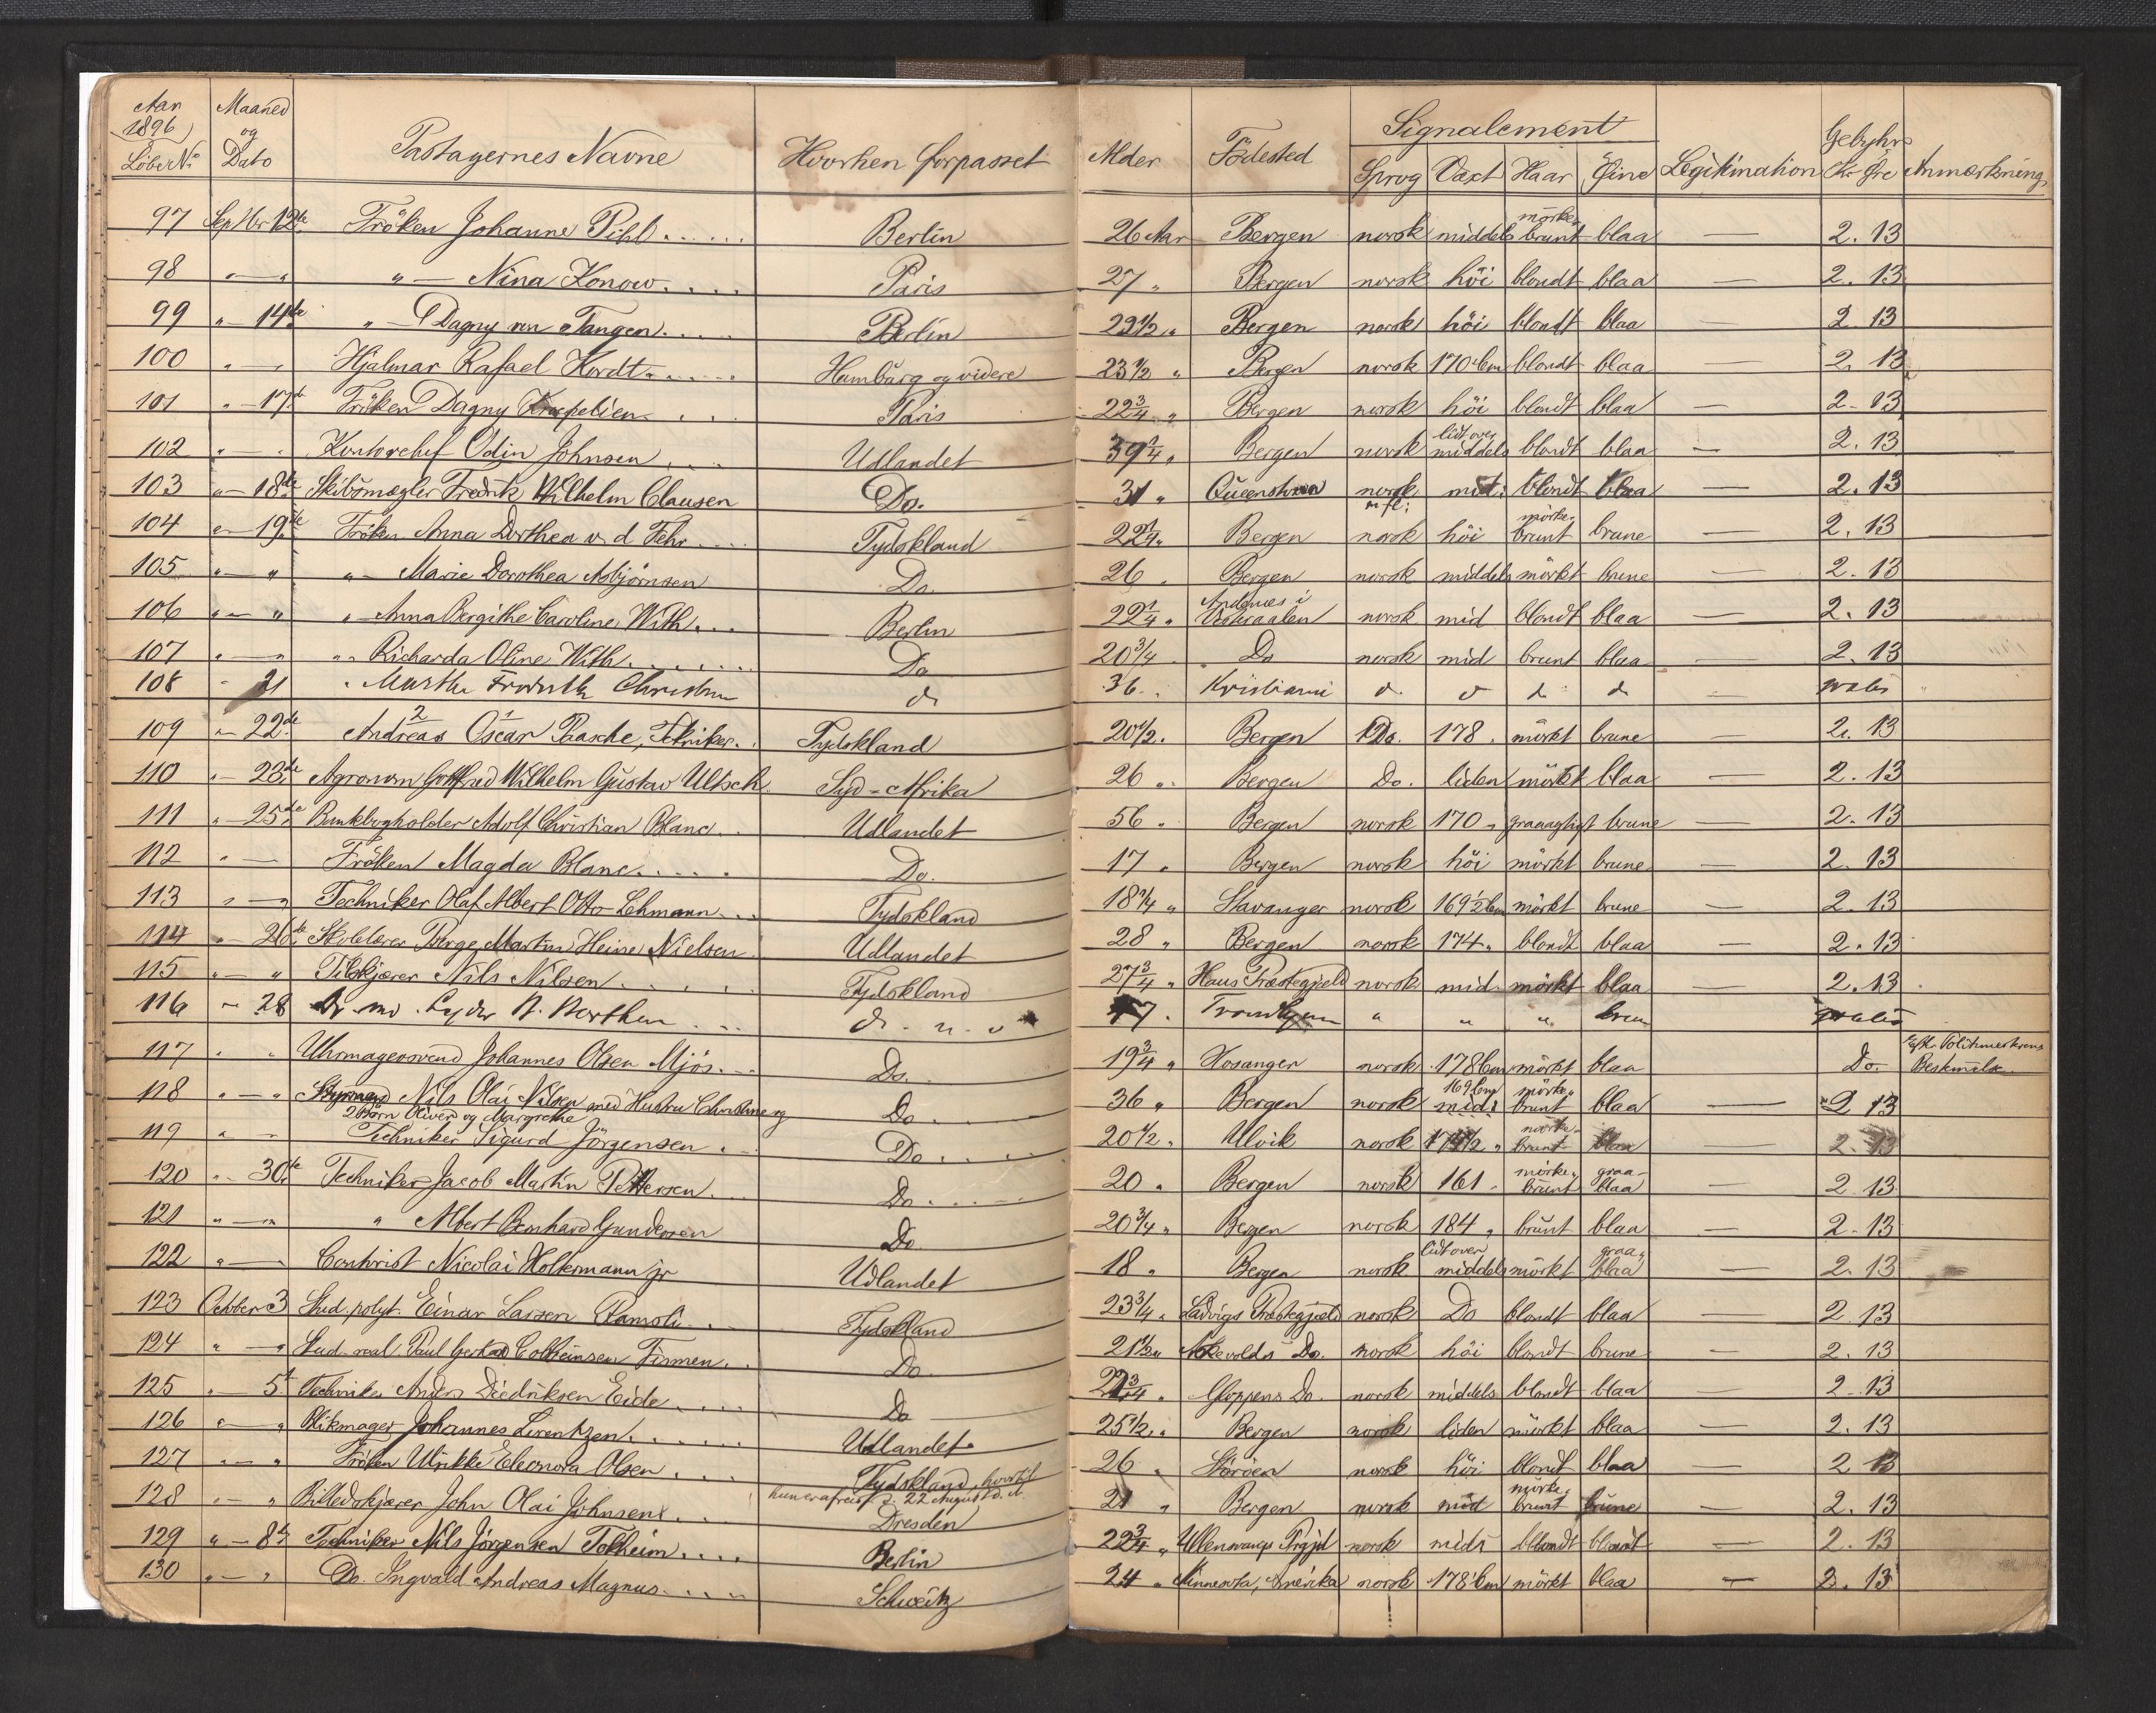 Aar 1896 Maaned og Dato Pastagernes Navne Hvorhen forpasset Alder Födested Signalement Gebyhr
LöbeNo Sprog Væxt Haar Öine Legitimation Kr Øre Anmærkning
97 Septbr 12te Fröken Johanne Pihl Berlin 26 Aar Bergen norsk middels mörkebrunt blaa — 2.13
98 " — " " — Nina Konow Paris 27 " Bergen norsk höi blondt blaa — 2.13
99 " — 14de " — Dagny von Tangen Berlin 29 1/2 " Bergen norsk höi blondt blaa — 2.13
100 " — " Hjalmar Rafael Hordt Hamburg og videre 23 1/2 " Bergen norsk 170 Cm blondt blaa — 2.13
101 " — 17de Fröken Dagny Krepelien Paris 22 3/4 " Bergen norsk höi blondt blaa — 2.13
102 " — " Kontorchef Odin Johnsen Udlandet 39 1/4 " Bergen norsk lidt over middels blondt blaa — 2.13
103 " — 18de Skibsmægler Fredrik Wilhelm Clausen Do. 31 " Queenstown norsk m fl: mid: blondt blaa — 2.13
104 " — 19de Fröken Anna Dorthea v. d. Fehr Tydskland 22 1/4 " Bergen norsk höi mörkebrunt brune — 2.13
105 " — " " — Marie Dorothea Asbjörnsen Do. 26 " Bergen norsk middels mörkt brune — 2.13
106 " — " " — Anna Bergithe Caroline With Berlin 22 1/4 " Andenes i Vesteraalen norsk mid blondt blaa — 2.13
107 " — " " — Richarda Oline With Do 20 3/4 Do norsk mid brunt blaa — 2.13
108 " 21 " Marthe Christine 36 " Kristiania gratis
109 " — 22de Andreas 2 Oscar 1 Paasche, Tekniker Tydskland 20 1/2 " Bergen Do. 178 " mörkt brune — 2.13
110 " — 23de Agronom Gottfred Wilhelm Gustav Ultsch Syd-Afrika 26 " Bergen Do. liden mörkt blaa — 2.13
111 " — 25de Bankbogholder Adolf Christian Blanc Udlandet 56 " Bergen norsk 170 " graaagtigt brune — 2.13
112 " — Fröken Magda Blanc Do. 17 " Bergen norsk höi mörkt brune — 2.13
113 " — " Techniker Olaf Albert Otto Lehmann Tydskland 18 1/4 " Stavanger norsk 169 1/2 Cm mörkt brune — 2.13
114 " — 26de Skolelærer Berge Martin Heine Nielsen Udlandet 28 " Bergen norsk 174 " blondt blaa — 2.13
115 " — " Tilskjærer Nils Nilsen Tydskland 27 3/4 " Haus Præstegjeld norsk mid mörkt blaa — 2.13
116 " — 28 Lyder Trondhjem " " " brun gratis
117 " " Uhrmagersvend Johannes Olsen Mjös Do. 19 3/4 " Hosanger norsk 178 Cm mörkt blaa Do. Efter Politimesterens Bestemmelse
118 " — " Styrmand Nils Olai Nilsen med Hustru Christine og 2 Börn Oliver og Margrethe Do 36 " Bergen norsk 169 Cm mid: mörkebrunt blaa — 2 13
119 " — " Techniker Sigurd Jörgensen Do 20 1/2 " Ulvik norsk 174 1/2 " mörkebrunt blaa — 2.13
120 " — 30te Techniker Jacob Martin Pettersen Do 20 " Bergen norsk 161 " mörkebrunt graablaa — 2.13
121 " — " " Albert Bernhard Gundersen Do. 20 3/4 " Bergen norsk 184 " brunt blaa — 2.13
122 " — Contorist Nicolai Holtermann jr Udlandet 18 " Bergen norsk lidt over middels mörkt graablaa — 2.13
123 October 3 Stud. polyt. Einar Larsen Tydskland 23 3/4 " Ladvigs Præstegjeld norsk Do blondt blaa — 2.13
124 " — " Stud. real. Paul Gerhard Colbeinsen Firmen Do. 21 1/2 " Askevolds Do. norsk höi blondt brune — 2.13
125 " — 5te Techniker Anders Diedriksen Eide Do 21 3/4 " Gloppens Do. norsk middels blondt blaa — 2.13
126 " — " Blikmager Johannes Lorentzen Udlandet 25 1/2 " Bergen norsk liden mörkt blaa — 2.13
127 " — " Fröken Ulrikke Eleonora Olsen Tydskland, hvortil hun er afreist d. 22 August d. A. 26 " Störöen norsk höi blondt blaa — 2 13
128 " — " Billedskjærer John Olai Johnsen Dresden 21 " Bergen norsk mid mörkebrunt brune — 2.13
129 " — 8de Techniker Nils Jörgensen Tokheim Berlin 22 3/4 " Ullensvangs Prgjld norsk mids blondt blaat — 2.13
130 " — " Do. Ingvald Andreas Magnus Schweitz 24 " Minnesota, Amerika norsk 178 Cm mörkt blaa — 2.13